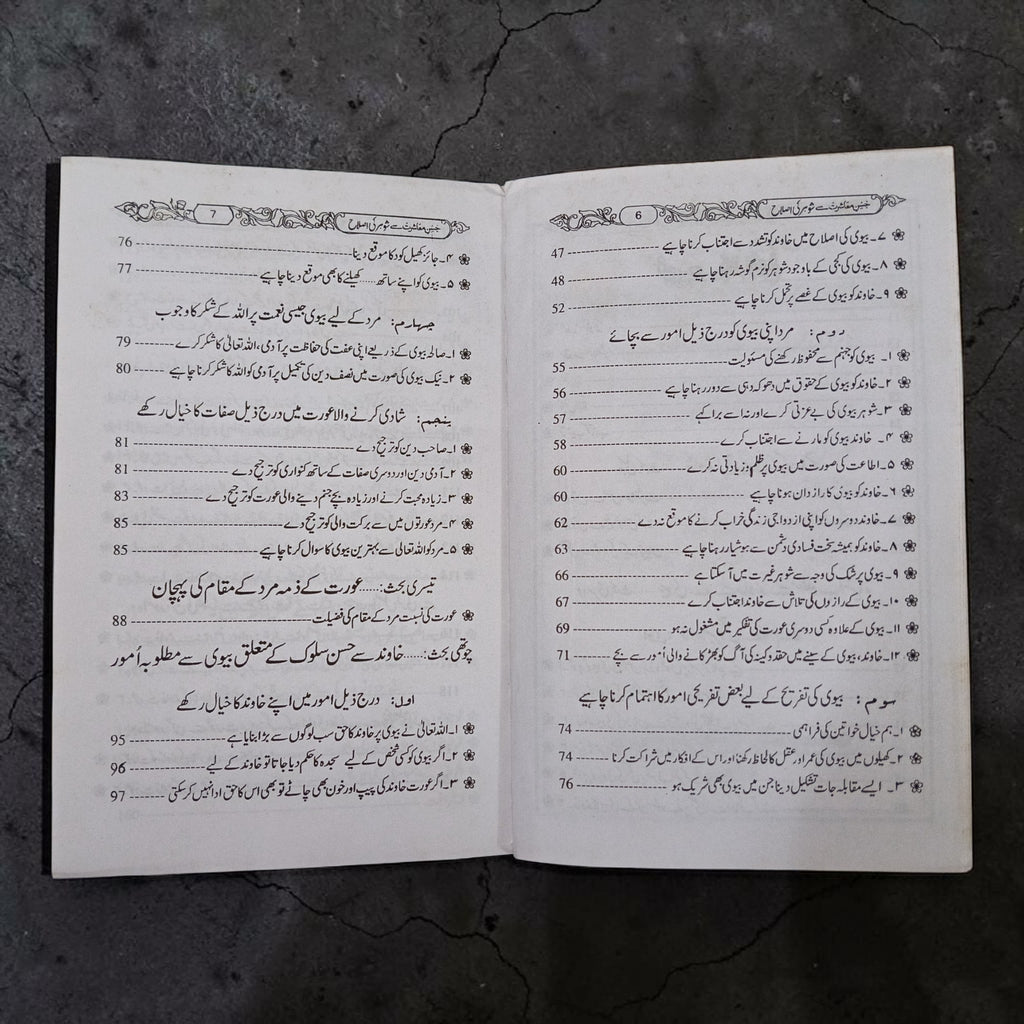 6 حسنِ معاشرت سے شوہر کی اصلاح
۷۔ بیوی کی اصلاح میں خاوند کو تشدد سے اجتناب کرنا چاہیے 47
۸۔ بیوی کی کجی کے باوجود شوہر کو نرم گوشہ رہنا چاہیے 48
۹۔ خاوند کو بیوی کے غصے پر تحمل کرنا چاہیے 52
دوم: مرد اپنی بیوی کو درج ذیل امور سے بچائے
۱۔ بیوی کو جہنم سے محفوظ رکھنے کی مسئولیت 55
۲۔ خاوند کو بیوی کے حقوق میں دھوکہ دہی سے دور رہنا چاہیے 56
۳۔ شوہر بیوی کی بے عزتی کرے اور نہ اسے برا کہے 57
۴۔ خاوند بیوی کو مارنے سے اجتناب کرے 58
۵۔ اطاعت کی صورت میں بیوی پر ظلم و زیادتی نہ کرے 60
۶۔ خاوند کو بیوی کا راز دان ہونا چاہیے 60
۷۔ خاوند دوسروں کو اپنی ازدواجی زندگی خراب کرنے کا موقع نہ دے 62
۸۔ خاوند کو ہمیشہ سخت فسادی دشمن سے ہوشیار رہنا چاہیے 63
۹۔ بیوی پر شک کی وجہ سے شوہر غیرت میں آ سکتا ہے 66
۱۰۔ بیوی کے رازوں کی تلاش سے خاوند اجتناب کرے 67
۱۱۔ بیوی کے علاوہ کسی دوسری عورت کی تفکیر میں مشغول نہ ہو 69
۱۲۔ خاوند، بیوی کے سینے میں حقد و کینہ کی آگ کو بھڑکانے والی اُمور سے بچے 71
سوم: بیوی کی تفریح کے لیے بعض تفریحی امور کا اہتمام کرنا چاہیے
۱۔ ہم خیال خواتین کی فراہمی 74
۲۔ کھیلوں میں بیوی کی عمر اور عقل کا لحاظ رکھنا اور اس کے افکار میں شراکت کرنا 74
۳۔ ایسے مقابلہ جات تشکیل دینا جن میں بیوی بھی شریک ہو 76
7 حسنِ معاشرت سے شوہر کی اصلاح
۴۔ جائز کھیل کود کا موقع دینا 76
۵۔ بیوی کو اپنے ساتھ ...... کھیلنے کا بھی موقع دینا چاہیے 77
چہارم: مرد کے لیے بیوی جیسی نعمت پر اللہ کے شکر کا وجوب
۱۔ صالحہ بیوی کے ذریعے اپنی عفت کی حفاظت پر آدمی، اللہ تعالیٰ کا شکر کرے 79
۲۔ نیک بیوی کی صورت میں نصف دین کی تکمیل پر آدمی کو اللہ کا شکر کرنا چاہیے 80
پنجم: شادی کرنے والا عورت میں درج ذیل صفات کا خیال رکھے
۱۔ صاحب دین کو ترجیح دے 81
۲۔ آدمی دین اور دوسری صفات کے ساتھ کنواری کو ترجیح دے 81
۳۔ زیادہ محبت کرنے اور زیادہ بچے جنم دینے والی عورت کو ترجیح دے 83
۴۔ مرد عورتوں میں سے برکت والی کو ترجیح دے 85
۵۔ مرد کو اللہ تعالی سے بہترین بیوی کا سوال کرنا چاہیے 85
تیسری بحث: ...... عورت کے ذمہ مرد کے مقام کی پہچان
عورت کی نسبت مرد کے مقام کی فضیلت 88
چوتھی بحث: ...... خاوند سے حسن سلوک کے متعلق بیوی سے مطلوبہ اُمور
اول: درج ذیل امور میں اپنے خاوند کا خیال رکھے
۱۔ اللہ تعالیٰ نے بیوی پر خاوند کا حق سب لوگوں سے بڑا بنایا ہے 95
۲۔ اگر بیوی کو کسی شخص کے لیے سجدہ کا حکم دیا جاتا تو خاوند کے لیے 96
۳۔ اگر عورت خاوند کی پیپ اور خون بھی چاٹے تو بھی اس کا حق ادا نہیں کر سکتی 97